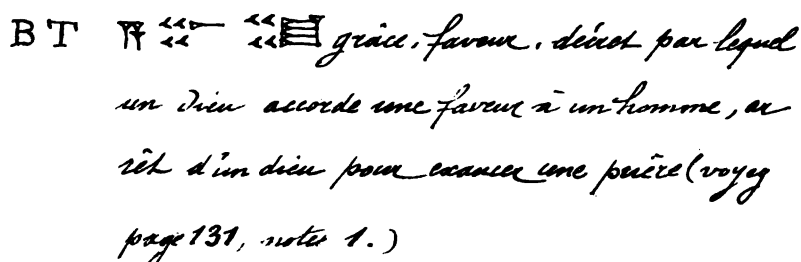 B T grâce, faveur, décret par lequel
un Dieu accorde une faveur à un homme, ar
rêt d'un dieu pour exaucer une prière (voyez
page 131, notes 1.)